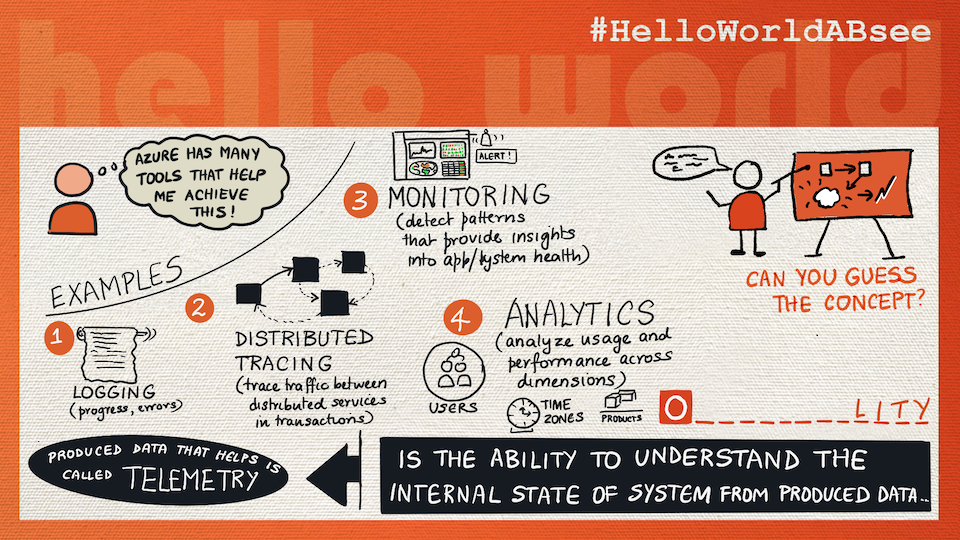 #HelloWorldABsee
hello world
AZURE HAS MANY
TOOLS THAT HELP
ME ACHIEVE
THIS!
EXAMPLES
1
LOGGING
(progress, errors)
2
DISTRIBUTED
TRACING
(trace traffic between
distributed services
in transactions)
ALERT!
3
MONITORING
(detect patterns
that provide insights
into app/system health)
4
ANALYTICS
(analyze usage and
performance across
dimensions)
USERS
TIME
ZONES
PRODUCTS
CAN YOU GUESS
THE CONCEPT?
O_ _ _ _ _ _ _ _LITY
IS THE ABILITY TO UNDERSTAND THE
INTERNAL STATE OF SYSTEM FROM PRODUCED DATA..
PRODUCED DATA THAT HELPS IS
CALLED TELEMETRY